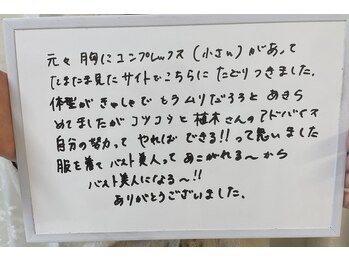 元々 胸にコンプレックス(小さい)があって
たまたま見たサイトでこちらに たどりつきました。
体型が きゃしゃで もうムリだろうと あきら
めてましたが コツコツと 植木さんのアドバイス
自分の努力って やればできる!!って思いました
服を着て バスト美人って あこがれる〜から
バスト美人になる〜!!
ありがとうございました。